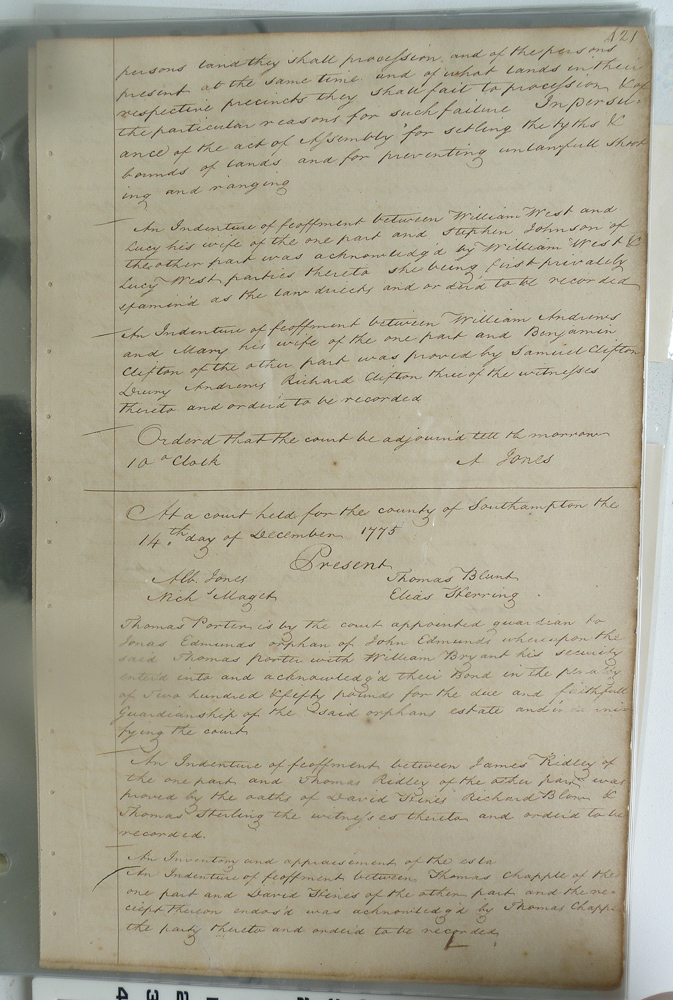 421
persons land they shall procession, and of the persons
present at the same time and of what lands in their
respective precincts they shall fail to procession & of
the particular reasons for such failure In persu-
ance of the act of Assembly for setling the tytles &
bounds of lands and for preventing unlawfull shoot
ing and ranging
An Indenture of feoffment between William West and
Lucy his wife of the one part and Stephen Johnson of
the other part was acknowledg'd by William West &
Lucy West parties thereto she being first privately
examin'd as the law directs and orderd to be recorded
An Indenture of feoffment between William Andrews
and Mary his wife of the one part and Benjamin
Clifton of the other part was proved by Samuel Clifton
Drury Andrews Richard Clifton three of the witnesses
thereto and order'd to be recorded
Orderd that the court be adjourn'd till to morrow
10 o Clock A Jones
At a court held for the county of Southampton the
14.th day of December 1775
Present
Alb Jones Thomas Blunt
Nich.s Maget Elias Herring
Thomas Porter is by the court appointed guardian to
Jonas Edmunds orphan of John Edmunds whereupon the
said Thomas Porter with William Bryant his security
enter'd into and acknowledg'd their Bond in the penalty
of Two hundred & fifty pounds for the due and faithfull
Guardianship of the said orphans estate and
fying the court
An Indenture of feoffment between James Ridley of
the one part and Thomas Ridley of the other part was
proved by the oaths of David Hines Richard Blow &
Thomas Sterling the witnesses thereto and order'd to be
recorded.
An Inventory and appraisement of the esta
An Indenture of feoffment between Thomas Chapple of the
one part and David Hines of the other part and the re-
ciept thereon endors'd was acknowledg'd by Thomas Chapp
the party thereto and order'd to be recorded
4 3